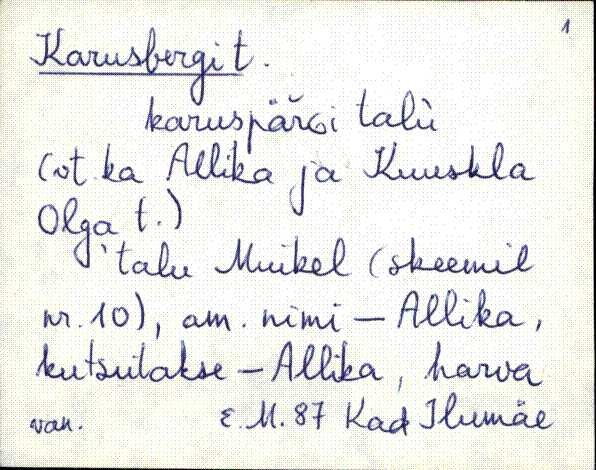 1
Karusbergi t.
karuspäŕǵi talù
(vt. ka Allika ja Kuuskla
Olga t.)
`talu Muikel (skeemil
nr. 10), am. nimi – Allika,
kutsutakse – Allika, harva
van. E. M. 87 Kad Ilumäe